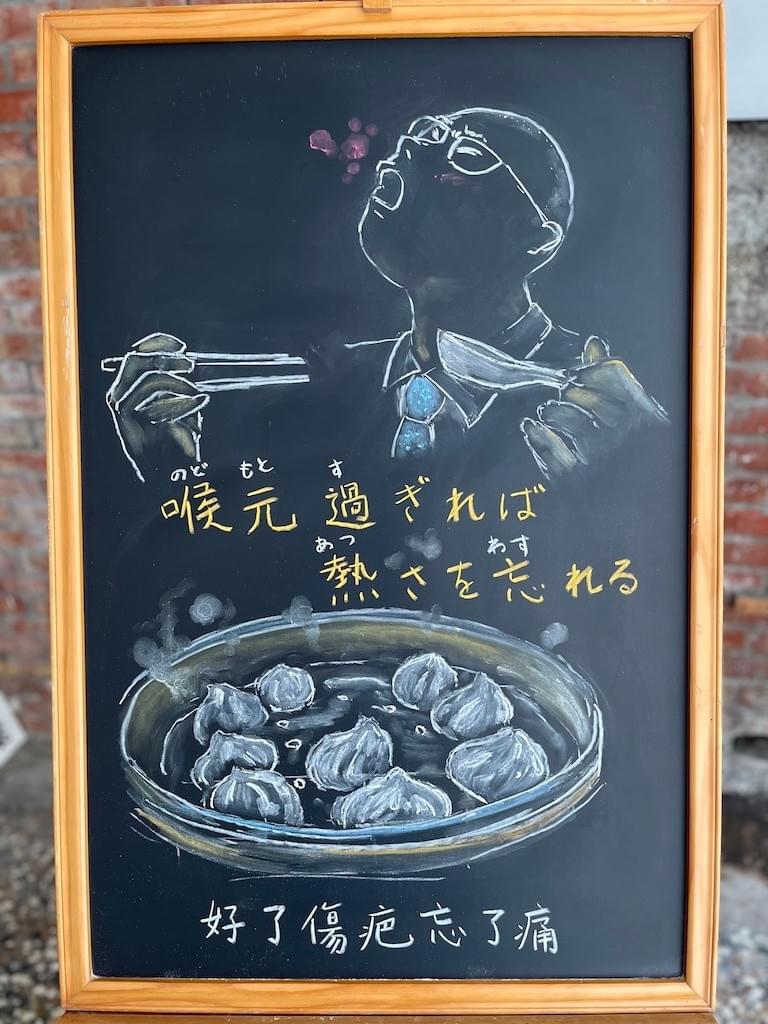 のど もと す
喉元 過ぎれば
あつ わす
熱さを忘れる
好了傷疤忘了痛